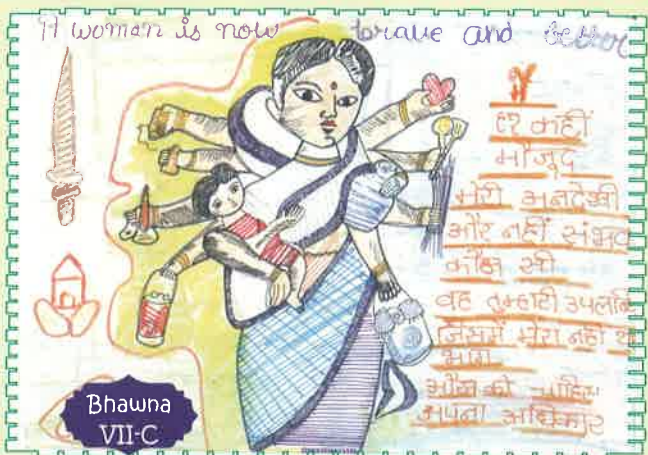 A woman is now brave and better
हर कहीं
मौजूद
मेरी अनदेखी
और नहीं संभव
कौन सी
वह तुम्हारी उपलब्धि
जिसमें मेरा नहीं था
भाग
अपना अधिकार
Bhawna
VII-C